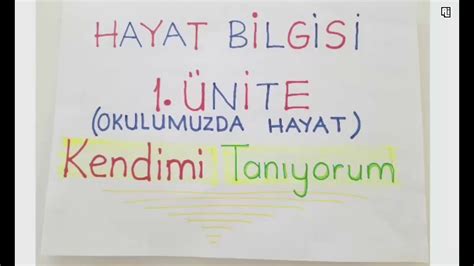 HAYAT BİLGİSİ
1. ÜNİTE
(OKULUMUZDA HAYAT)
Kendimi Tanıyorum